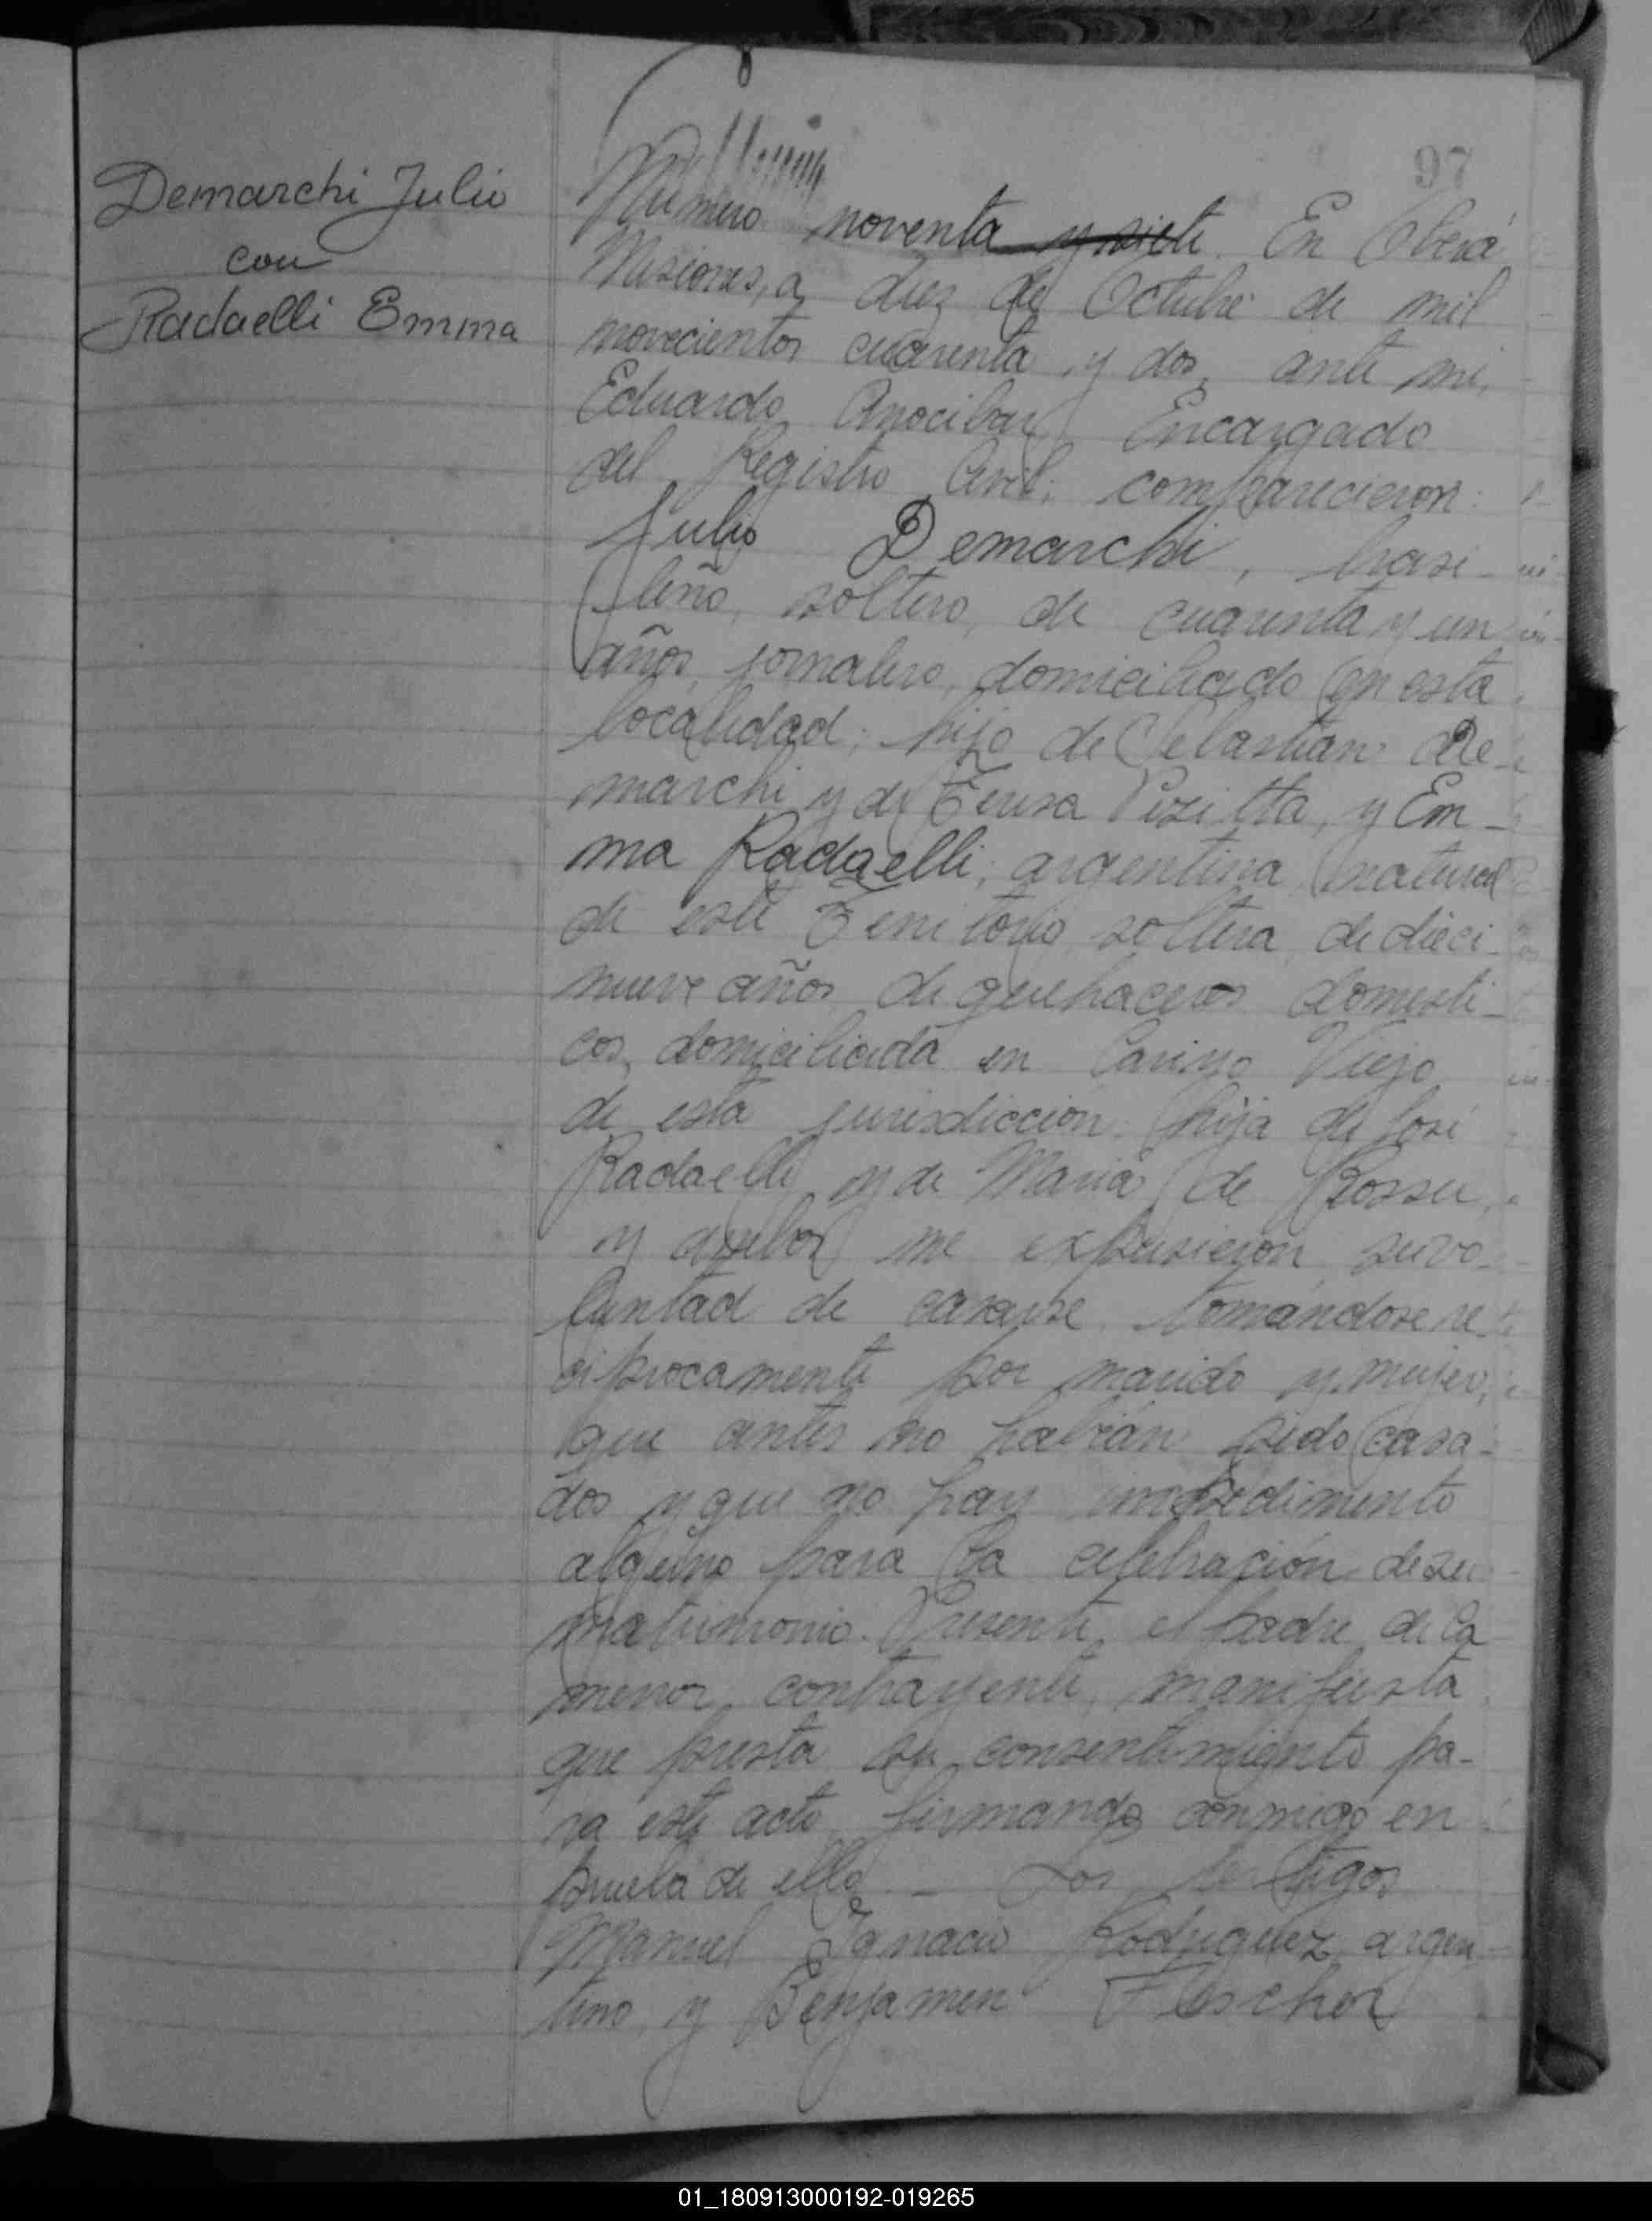 97
Demarchi Julio
con
Radaelli Emma
Número noventa y siete. En Oberá
Misiones, a diez de Octubre de mil
novecientos cuarenta y dos, ante mi,
Eduardo Anocibar Encargado
del Registro Civil; comparecieron:
Julio Demarchi, brasi-
leño, soltero, de cuarenta y un
años, jornalero, domiciliado en esta
localidad; hijo de Sebastian De-
marchi y de Teresa y Em-
ma Radaelli; argentina, natural
de este Territorio, soltera, de dieci-
nueve años, de quehaceres domesti-
cos, domiciliada en Viejo
de esta jurisdicción; hija de José
Radaelli y de María de
y ambos me expusieron su vo-
luntad de casarse, tomándose re-
ciprocamente por marido y mujer,
que antes no habían sido casa-
dos y que no hay impedimento
alguno para la celebración de su
matrimonio. Presente el padre de la
menor contrayente, manifiesta
que presta su consentimiento pa-
ra este acto firmando conmigo en
prueba de ello. — Los testigos
Manuel Ignacio Rodriguez, argen-
tino, y Benjamin
01_180913000192-019265